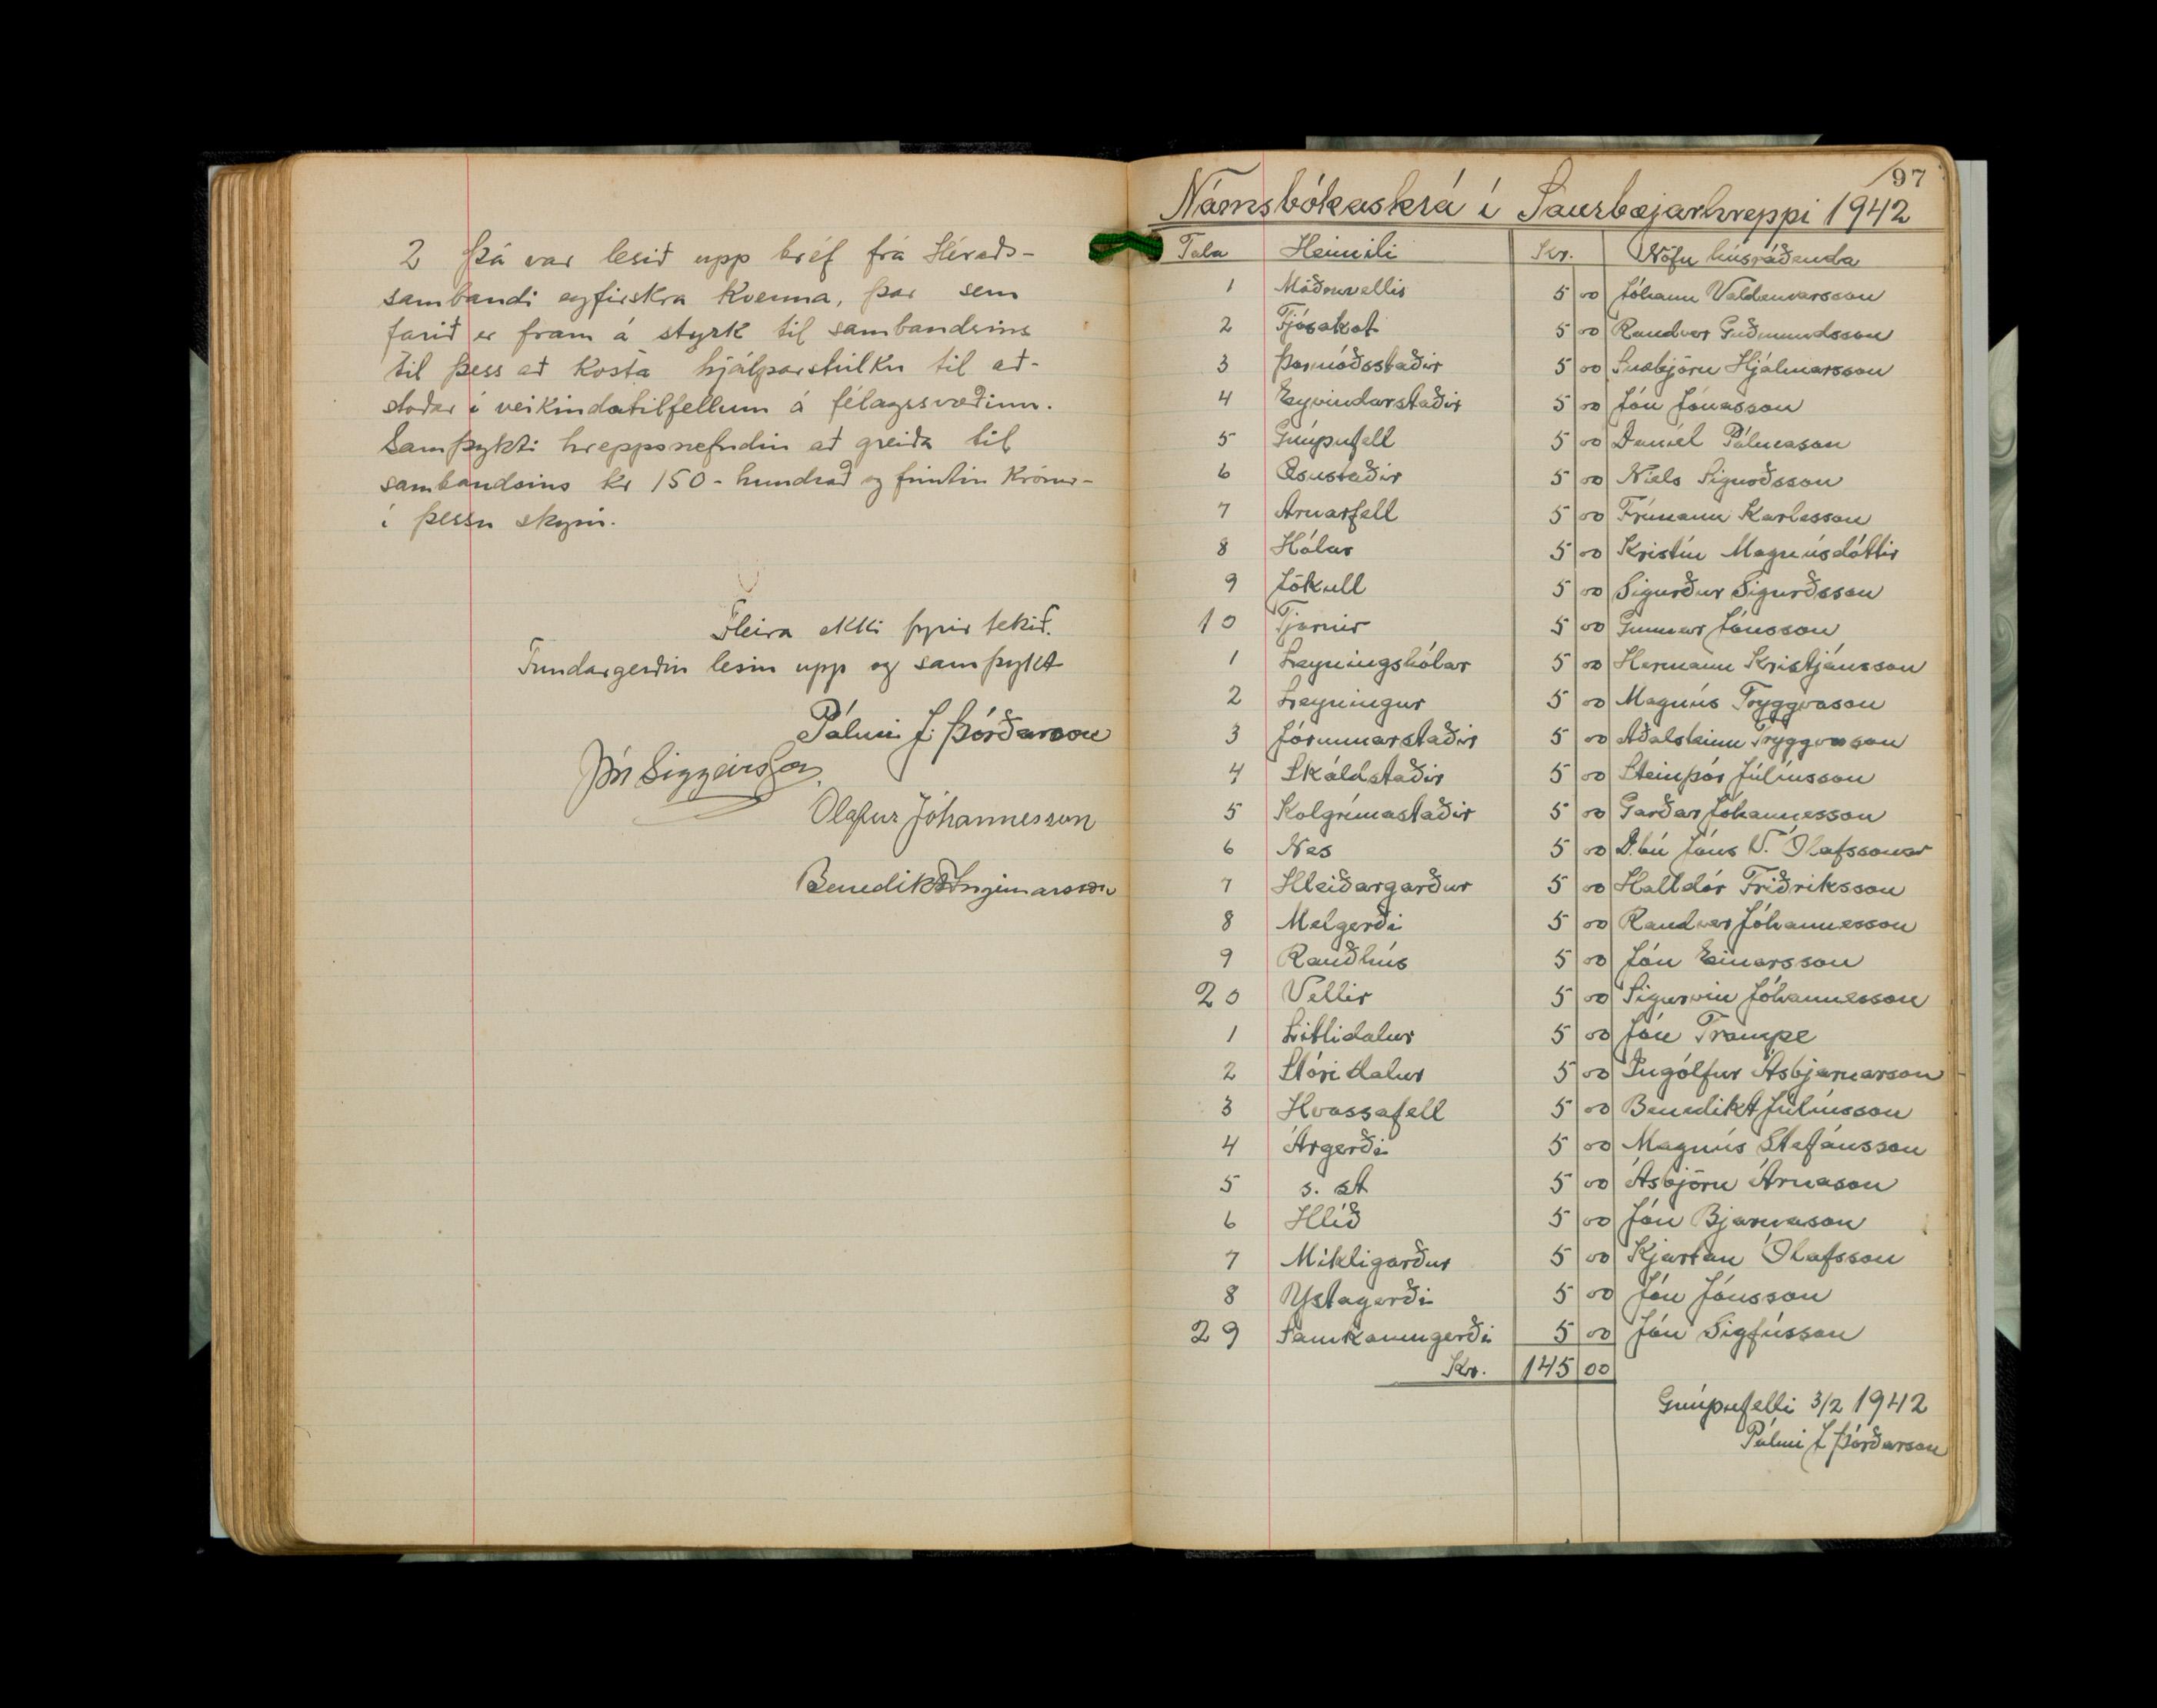 2 Þá var lesið upp bréf frá Héraðs-
sambandi eyfirskra kvenna, þar sem
farið er fram á styrk til sambandsins
til þess að kosta hjálparstúlku til að-
stoðar í veikindatilfellum á félagssvæðinu.
Samþykti hreppsnefndin að greiða til
sambandsins kr 150 - hundrað og fimtíu krónur -
í þessu skyni.
Fleira ekki fyrir tekið.
Fundargerðin lesin upp og samþykt
Pálmi J. Þórðarson
Jón Siggeirsson
Ólafur Jóhannesson
Benedikt Ingimarsson
97
Námsbókaskrá í Saurbæjarhreppi 1942
Tala Heimili Kr. Nöfn húsráðenda
1 Möðruvellir 5 00 Jóhann Valdemarsson
2 Fjósakot 5 00 Randver Guðmundsson
3 Þormóðsstaðir 5 00 Snæbjörn Hjálmarsson
4 Eyvindarstaðir 5 00 Jón Jónasson
5 Gnúpufell 5 00 Daníel Pálmason
6 Æsustaðir 5 00 Níels Sigurðsson
7 Arnarfell 5 00 Frímann Karlesson
8 Hólar 5 00 Kristín Magnúsdóttir
9 Jökull 5 00 Sigurður Sigurðsson
10 Tjarnir 5 00 Gunnar Jónsson
1 Leyningshólar 5 00 Hermann Kristjánsson
2 Leyningur 5 00 Magnús Tryggvason
3 Jórunnarstaðir 5 00 Aðalsteinn Tryggvason
4 Skáldstaðir 5 00 Steinþór Júlíusson
5 Kolgrímastaðir 5 00 Garðar Jóhannesson
6 Nes 5 00 D.bú Jóns V. Ólafssonar
7 Hleiðargarður 5 00 Halldór Friðriksson
8 Melgerði 5 00 Randver Jóhannesson
9 Rauðhús 5 00 Jón Einarsson
20 Vellir 5 00 Sigurvin Jóhannesson
1 Litlidalur 5 00 Jón Trampe
2 Stóridalur 5 00 Ingólfur Ásbjarnarson
3 Hvassafell 5 00 Benedikt Júlíusson
4 Árgerði 5 00 Magnús Stefánsson
5 s. st 5 00 Ásbjörn Árnason
6 Hlíð 5 00 Jón Bjarnason
7 Mikligarður 5 00 Kjartan Ólafsson
8 Ystagerði 5 00 Jón Jónsson
29 Samkomugerði 5 00 Jón Sigfússon
Kr. 145 00
Gnúpufelli 3/2 1942
Pálmi J Þórðarson